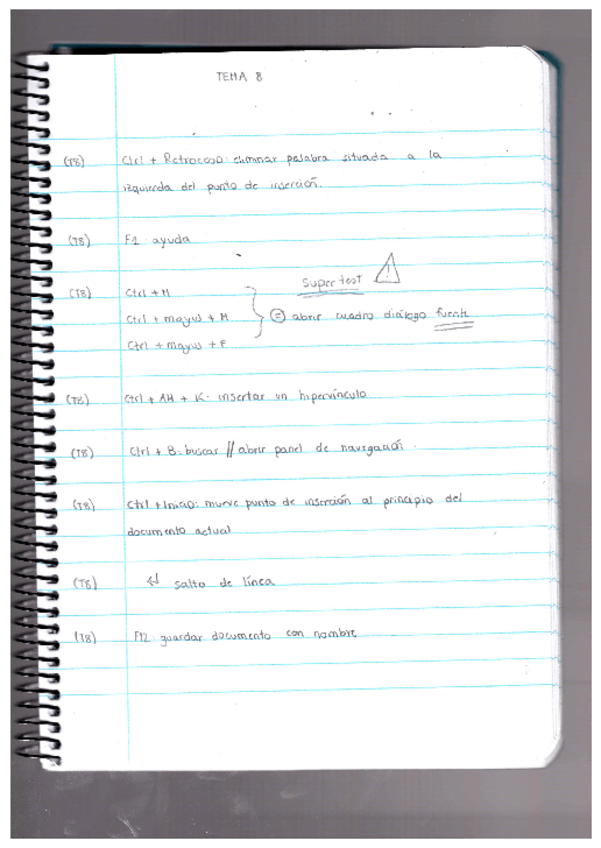 TEMA 8
(T8) Ctrl + Retroceso: eliminar palabra situada a la
izquierda del punto de inserción.
(T8) F1: ayuda
Super test !
(T8) Ctrl + M
Ctrl + mayus + M = abrir cuadro diálogo fuente
Ctrl + mayus + F
(T8) Ctrl + Alt + K: insertar un hipervínculo
(T8) Ctrl + B: buscar // abrir panel de navegación.
(T8) Ctrl + Inicio: mueve punto de inserción al principio del
documento actual
(T8) ↵ salto de línea
(T8) F12: guardar documento con nombre